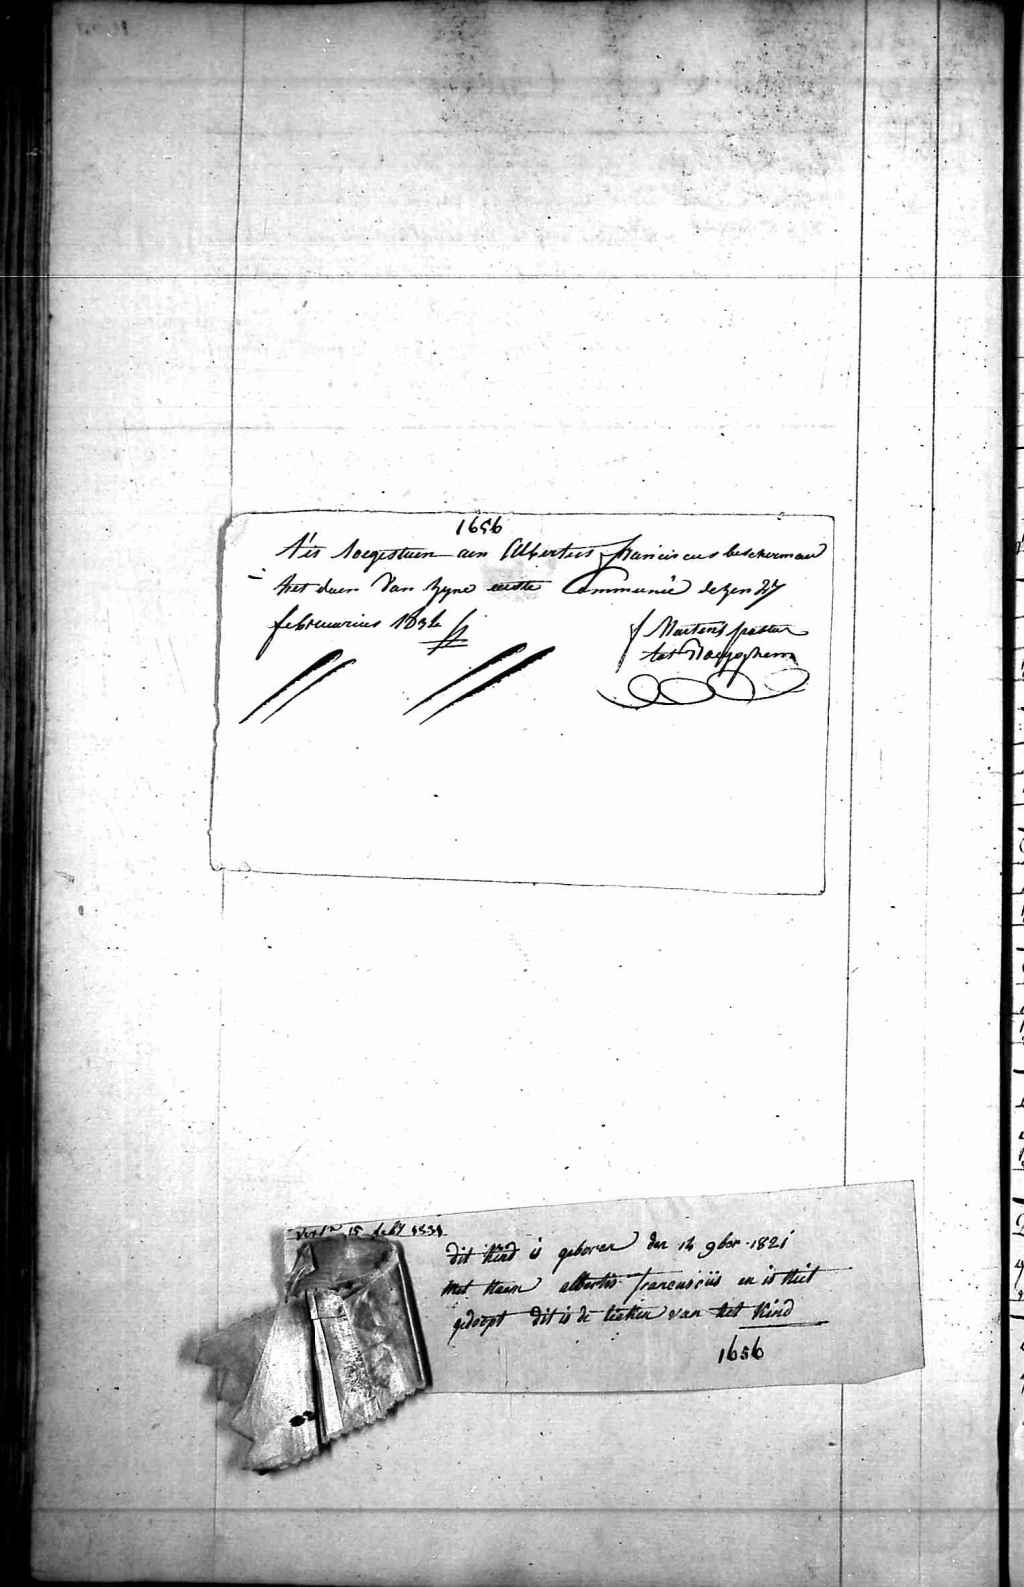 1656
t'is toegestaen aen Albertus franciscus beschermaul
het doen van zyne eerste Communie dezen 27
februarius 1834
J Martens pastor
tot
dit kind is geboren den 14 9ber 1821
met naem albertus franciscus en is niet
gedoopt dit is de teeken van het kind
1656